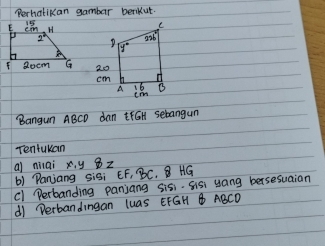 Perhatikan gambar berikut.
E 15 cm H
2°
F 20cm G
C
226
D y°
20 cm
A 16 cm B
Bangun ABCD dan EFGH sebangun
Tentukan
a) nilai x,y & z
b) Panjang sisi EF, BC, & HG
c) Perbanding panjang sisi-sisi yang bersesuaian
d) Perbandingan luas EFGH & ABCD